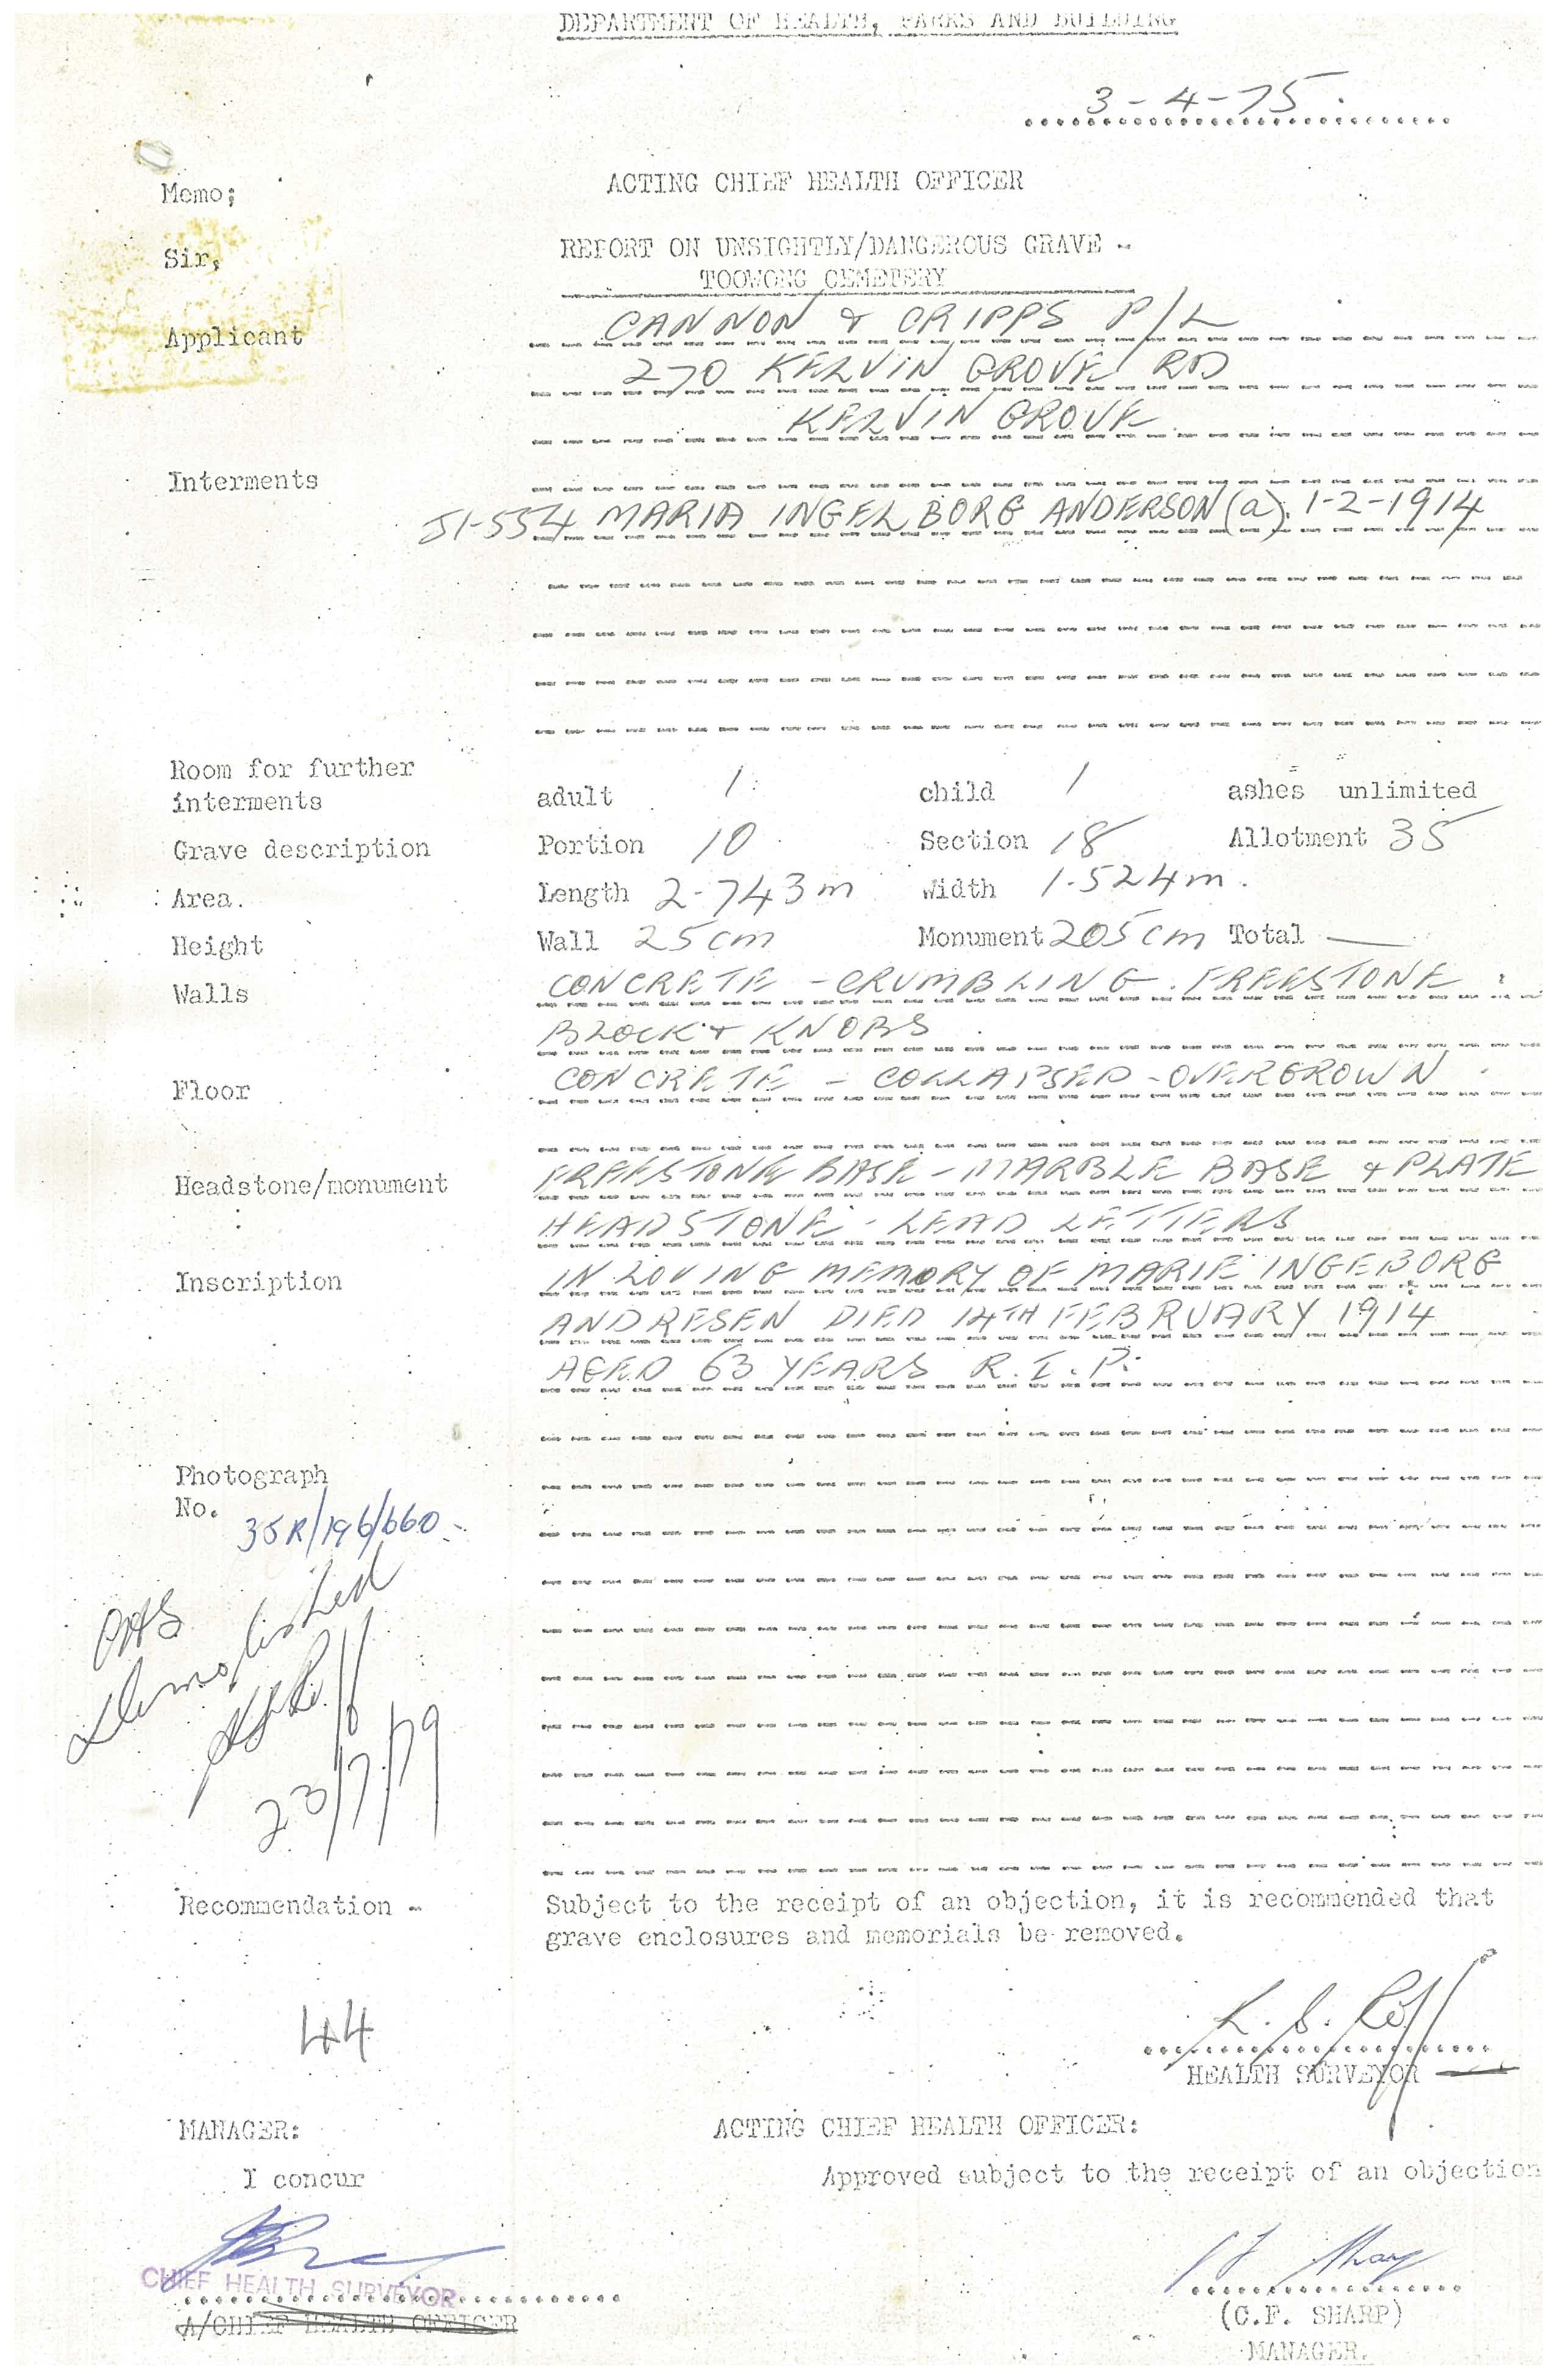 DEPARTMENT OF HEALTH, PARKS AND BUILDING
3-4-75.
Memo; ACTING CHIEF HEALTH OFFICER
Sir, REPORT ON UNSIGHTLY/DANGEROUS GRAVE -
TOOWONG CEMETERY
Applicant CANNON & CRIPPS P/L
270 KELVIN GROVE RD
KELVIN GROVE
Interments
51-554 MARIA INGELBORG ANDERSON (a). 1-2-1914
Room for further
interments adult 1 child 1 ashes unlimited
Grave description Portion 10 Section 18 Allotment 35
Area. Length 2.743m Width 1.524m.
Height Wall 25cm Monument 205cm Total —
Walls CONCRETE - CRUMBLING. FREESTONE
BLOCK & KNOBS
Floor CONCRETE - COLLAPSED - OVERGROWN
Headstone/monument FREESTONE BASE - MARBLE BASE & PLATE
HEADSTONE - LEAD LETTERS
Inscription IN LOVING MEMORY OF MARIE INGEBORG
ANDRESEN DIED 14TH FEBRUARY 1914
AGED 63 YEARS R.I.P.
Photograph
No. 35R/196/660
demolished
23/7/79
Recommendation - Subject to the receipt of an objection, it is recommended that
grave enclosures and memorials be removed.
44
HEALTH SURVEYOR
MANAGER: ACTING CHIEF HEALTH OFFICER:
I concur Approved subject to the receipt of an objection
CHIEF HEALTH SURVEYOR
A/CHIEF HEALTH OFFICER
(C.F. SHARP)
MANAGER.